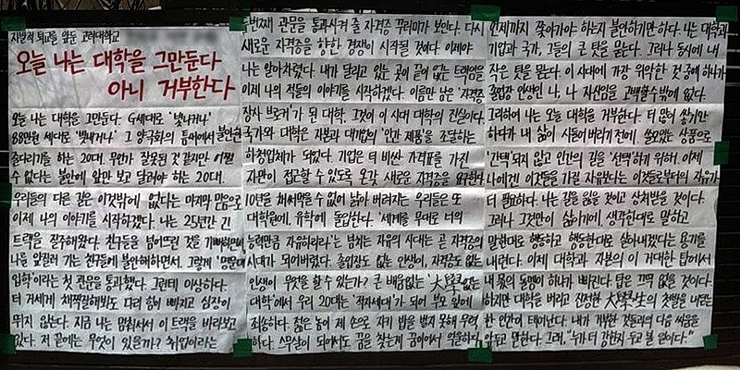 자발적 퇴교를 앞둔 고려대학교
오늘 나는 대학을 그만둔다
아니 거부한다
오늘 나는 대학을 그만둔다. G세대로 '빛나거나'
88만원 세대로 '빚내거나' 그 양극화의 틈새에서 불안한
줄타기를 하는 20대. 뭔가 잘못된 것 같지만 어쩔
수 없다는 불안에 앞만 보고 달려야 하는 20대.
우리들의 다른 길은 이것밖에 없다는 마지막 믿음으로
이제 나의 이야기를 시작하겠다. 나는 25년간 긴
트랙을 질주해왔다. 친구들을 넘어뜨린 것을 기뻐하면서
나를 앞질러 가는 친구들에 불안해하면서 그렇게 '명문대
입학'이라는 첫 관문을 통과했다. 그런데 이상하다.
더 거세게 채찍질해봐도 다리 힘이 빠지고 심장이
뛰지 않는다. 지금 나는 멈춰서서 이 트랙을 바라보고
있다. 저 끝에는 무엇이 있을까? 취업이라는
두번째 관문을 통과시켜 줄 자격증 꾸러미가 보인다. 다시
새로운 자격증을 향한 경쟁이 시작될 것이다. 이제야
나는 알아차렸다. 내가 달리고 있는 곳이 끝이 없는 트랙임을
이제 나의 적들의 이야기를 시작하겠다. 이름만 남은 '자격증
장사 브로커'가 된 대학. 그것이 이 시대 대학의 진실이다.
국가와 대학은 자본과 대기업의 '인간 제품'을 조달하는
하청업체가 되었다. 기업은 더 비싼 가격표를 가진
자만이 접근할 수 있도록 온갖 새로운 자격증을 요구한다
10년을 채 써먹을 수 없어 낡아 버려지는 우리들은 또
대학원에, 유학에 돌입한다. '세계를 무대로 너의
능력만큼 자유하리라'는 넘치는 자유의 시대는 곧 자격증의
시대가 되어버렸다. 졸업장도 없는 인생이, 자격증도 없는
인생이 무엇을 할 수 있는가? 큰 배움없는 '大學없는
대학'에서 우리 20대는 '적자세대'가 되어 부모 앞에
죄송하다. 젊은 놈이 제 손으로 자기 밥을 벌지 못해 무력
하다. 스무살이 되어서도 꿈을 찾는게 꿈이어서 억울하다.
언제까지 쫓아가야 하는지 불안하기만 하다. 나는 대학과
기업과 국가, 그들의 큰 탓을 묻는다. 그러나 동시에 내
작은 탓을 묻는다. 이 시대에 가장 위악한 것 중에 하나가
졸업장 인생인 나, 나 자신임을 고백할 수밖에 없다.
그리하여 나는 오늘 대학을 거부한다. 더 많이 쌓기만
하다가 내 삶이 시들어 버리기 전에. 쓸모있는 상품으로
'간택'되지 않고 인간의 길을 '선택'하기 위해. 이제
나에겐 이것들을 가질 자유보다는 이것들로부터의 자유가
더 필요하다. 나는 길을 잃을 것이고 상처받을 것이다.
그러나 그것만이 삶이기에. 생각한대로 말하고
말한대로 행동하고 행동한대로 살아내겠다는 용기를
내련다. 이제 대학과 자본의 이 거대한 탑에서
내 몫의 돌멩이 하나가 빠진다. 탑은 끄떡 없을 것이다.
하지만 대학을 버리고 진정한 大學生의 첫발을 내딛는
한 인간이 태어난다. 내가 거부한 것들과의 다음 싸움을
앞두고 말한다. 그래, "누가 더 강한지 두고 볼 일이다."